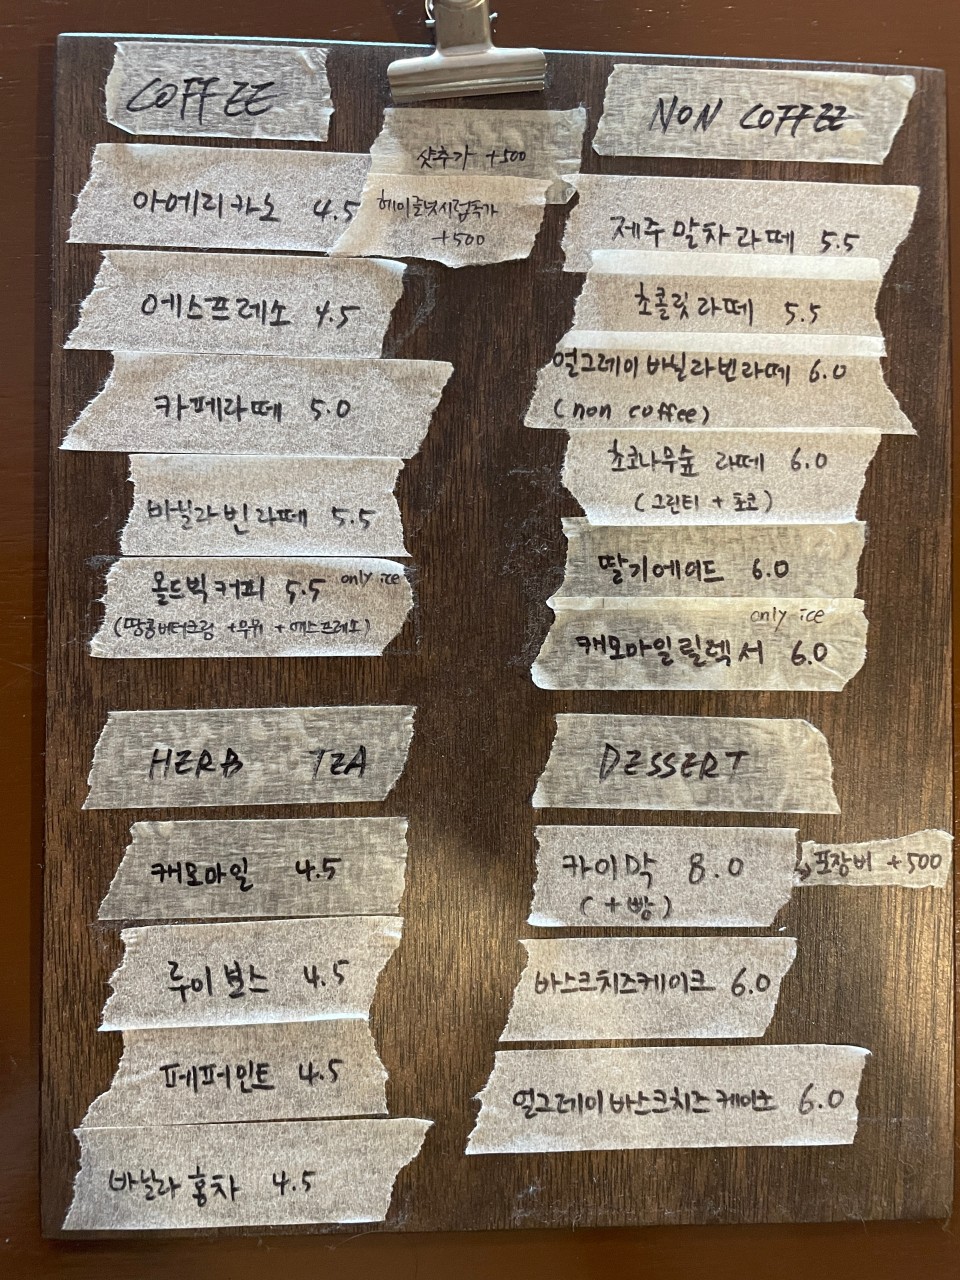 COFFEE
샷추가 +500
헤이즐넛시럽추가
+500
아메리카노 4.5
에스프레소 4.5
카페라떼 5.0
바닐라빈라떼 5.5
올드빅커피 5.5 only ice
(땅콩버터크림 +우유 +에스프레소)
NON COFFEE
제주말차라떼 5.5
초콜릿라떼 5.5
얼그레이바닐라빈라떼 6.0
(non coffee)
초코나무숲 라떼 6.0
(그린티 + 초코)
딸기에이드 6.0
only ice
캐모마일릴렉서 6.0
HERB TEA
캐모마일 4.5
루이보스 4.5
페퍼민트 4.5
바닐라홍차 4.5
DESSERT
카이막 8.0
(+빵)
포장비 +500
바스크치즈케이크 6.0
얼그레이바스크치즈케이크 6.0